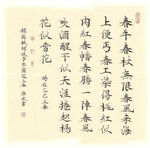 春牛春杖無限春風來海
上便丐春工染得桃紅似
肉紅春幡春勝一陣春風
吹酒醒不似天涯捲起楊
花似雪花
錄蘇軾減字木蘭花立春